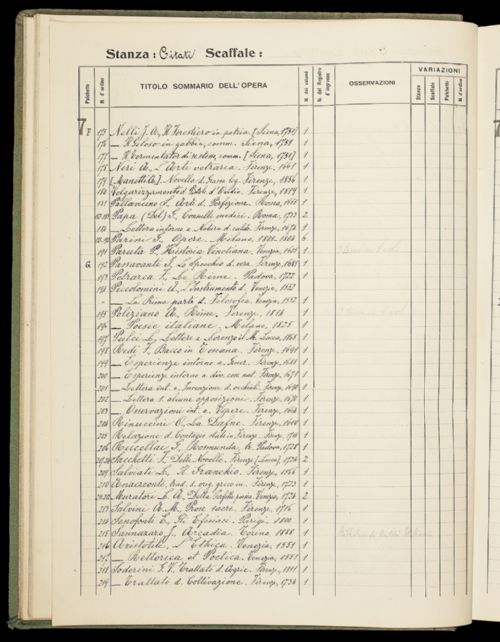 Stanza: Citati Scaffale:
VARIAZIONI
Palchetto N. d'ordine TITOLO SOMMARIO DELL'OPERA N. dei volumi N. del Registro d'ingresso OSSERVAZIONI Stanza Scaffale Palchetto N. d'ordine
7 F 175 Nelli J. A., Il Forestiero in patria. [Siena, 1781] 1
176 — Il Geloso in gabbia, comm. Siena, 1781 1
177 — Il Tormentator di se stesso, comm. [Siena, 1781] 1
178 Neri A., L'Arte vetraria. Firenze, 1661 1
179 [Manetti A.] Novella d. Grasso leg. Firenze, 1856 1
180 Volgarizzamento d. Pist. d'Ovidio. Firenze, 1819 1
181 Pallavicino S., Arte d. Perfezione. Roma, 1665 1
182-83 Papa (Del) G., Consulti medici. Roma, 1733 2
184 — Lettera intorno a Natura d. caldo. Firenze, 1674 1
185-90 Parini G., Opere. Milano, 1801-1804 6
191 Paruta P., Historia Venetiana. Venezia, 1605 1
G. 192 Passavanti J., Lo Specchio d. vera. Firenze, 1685 1
193 Petrarca F., Le Rime. Padova, 1722 1
194 Piccolomini A., L'Instrumento d. Venezia, 1552
" — La Prima parte d. Filosofia. Venezia, 1552 1
195 Poliziano A., Rime. Firenze, 1814 1
196 — Poesie italiane. Milano, 1825 1
197 Pulci L., Lettere a Lorenzo il M. Lucca, 1868 1
198 Redi F., Bacco in Toscana. Firenze, 1691 1
199 — Esperienze intorno a Firenze, 1 1
200 — Esperienze intorno a div. cose nat. Firenze, 1671 1
201 — Lettera int. a Invenzione d. occhiali. Firenze, 1690 1
202 — Lettera s. alcune opposizioni. Firenze, 1670 1
203 — Osservazioni int. a Vipere. Firenze, 1664 1
204 Rinuccini O., La Dafne. Firenze, 1600 1
205 Relazione d. Contagio stato in Firenze. Firenze, 1714 1
206 Rucellai G., Rosmunda. Padova, 1728 1
207-208 Sacchetti F., Delle Novelle. Firenze [Lucca], 1724 2
209 Salviati L., Il Granchio. Firenze, 1566 1
210 Anacreonte, trad. d. orig. greco in. Firenze, 1723 1
211-212 Muratori L. A., Della Perfetta poesia. Venezia, 1724 2
213 Salvini A. M., Prose sacre. Firenze, 1716 1
214 Senofonte E., Gli Efesiaci. Parigi, 1800 1
215 Sannazaro J., Arcadia. Torino 1888 1
216 Aristotile, L'Ethica. Venezia, 1551 1
217 — Rettorica et Poetica. Venezia, 1551 1
218 Soderini G. V., Trattato d. Agric. Firenze, 1811 1
219 — Trattato d. Coltivazione. Firenze, 1734 1